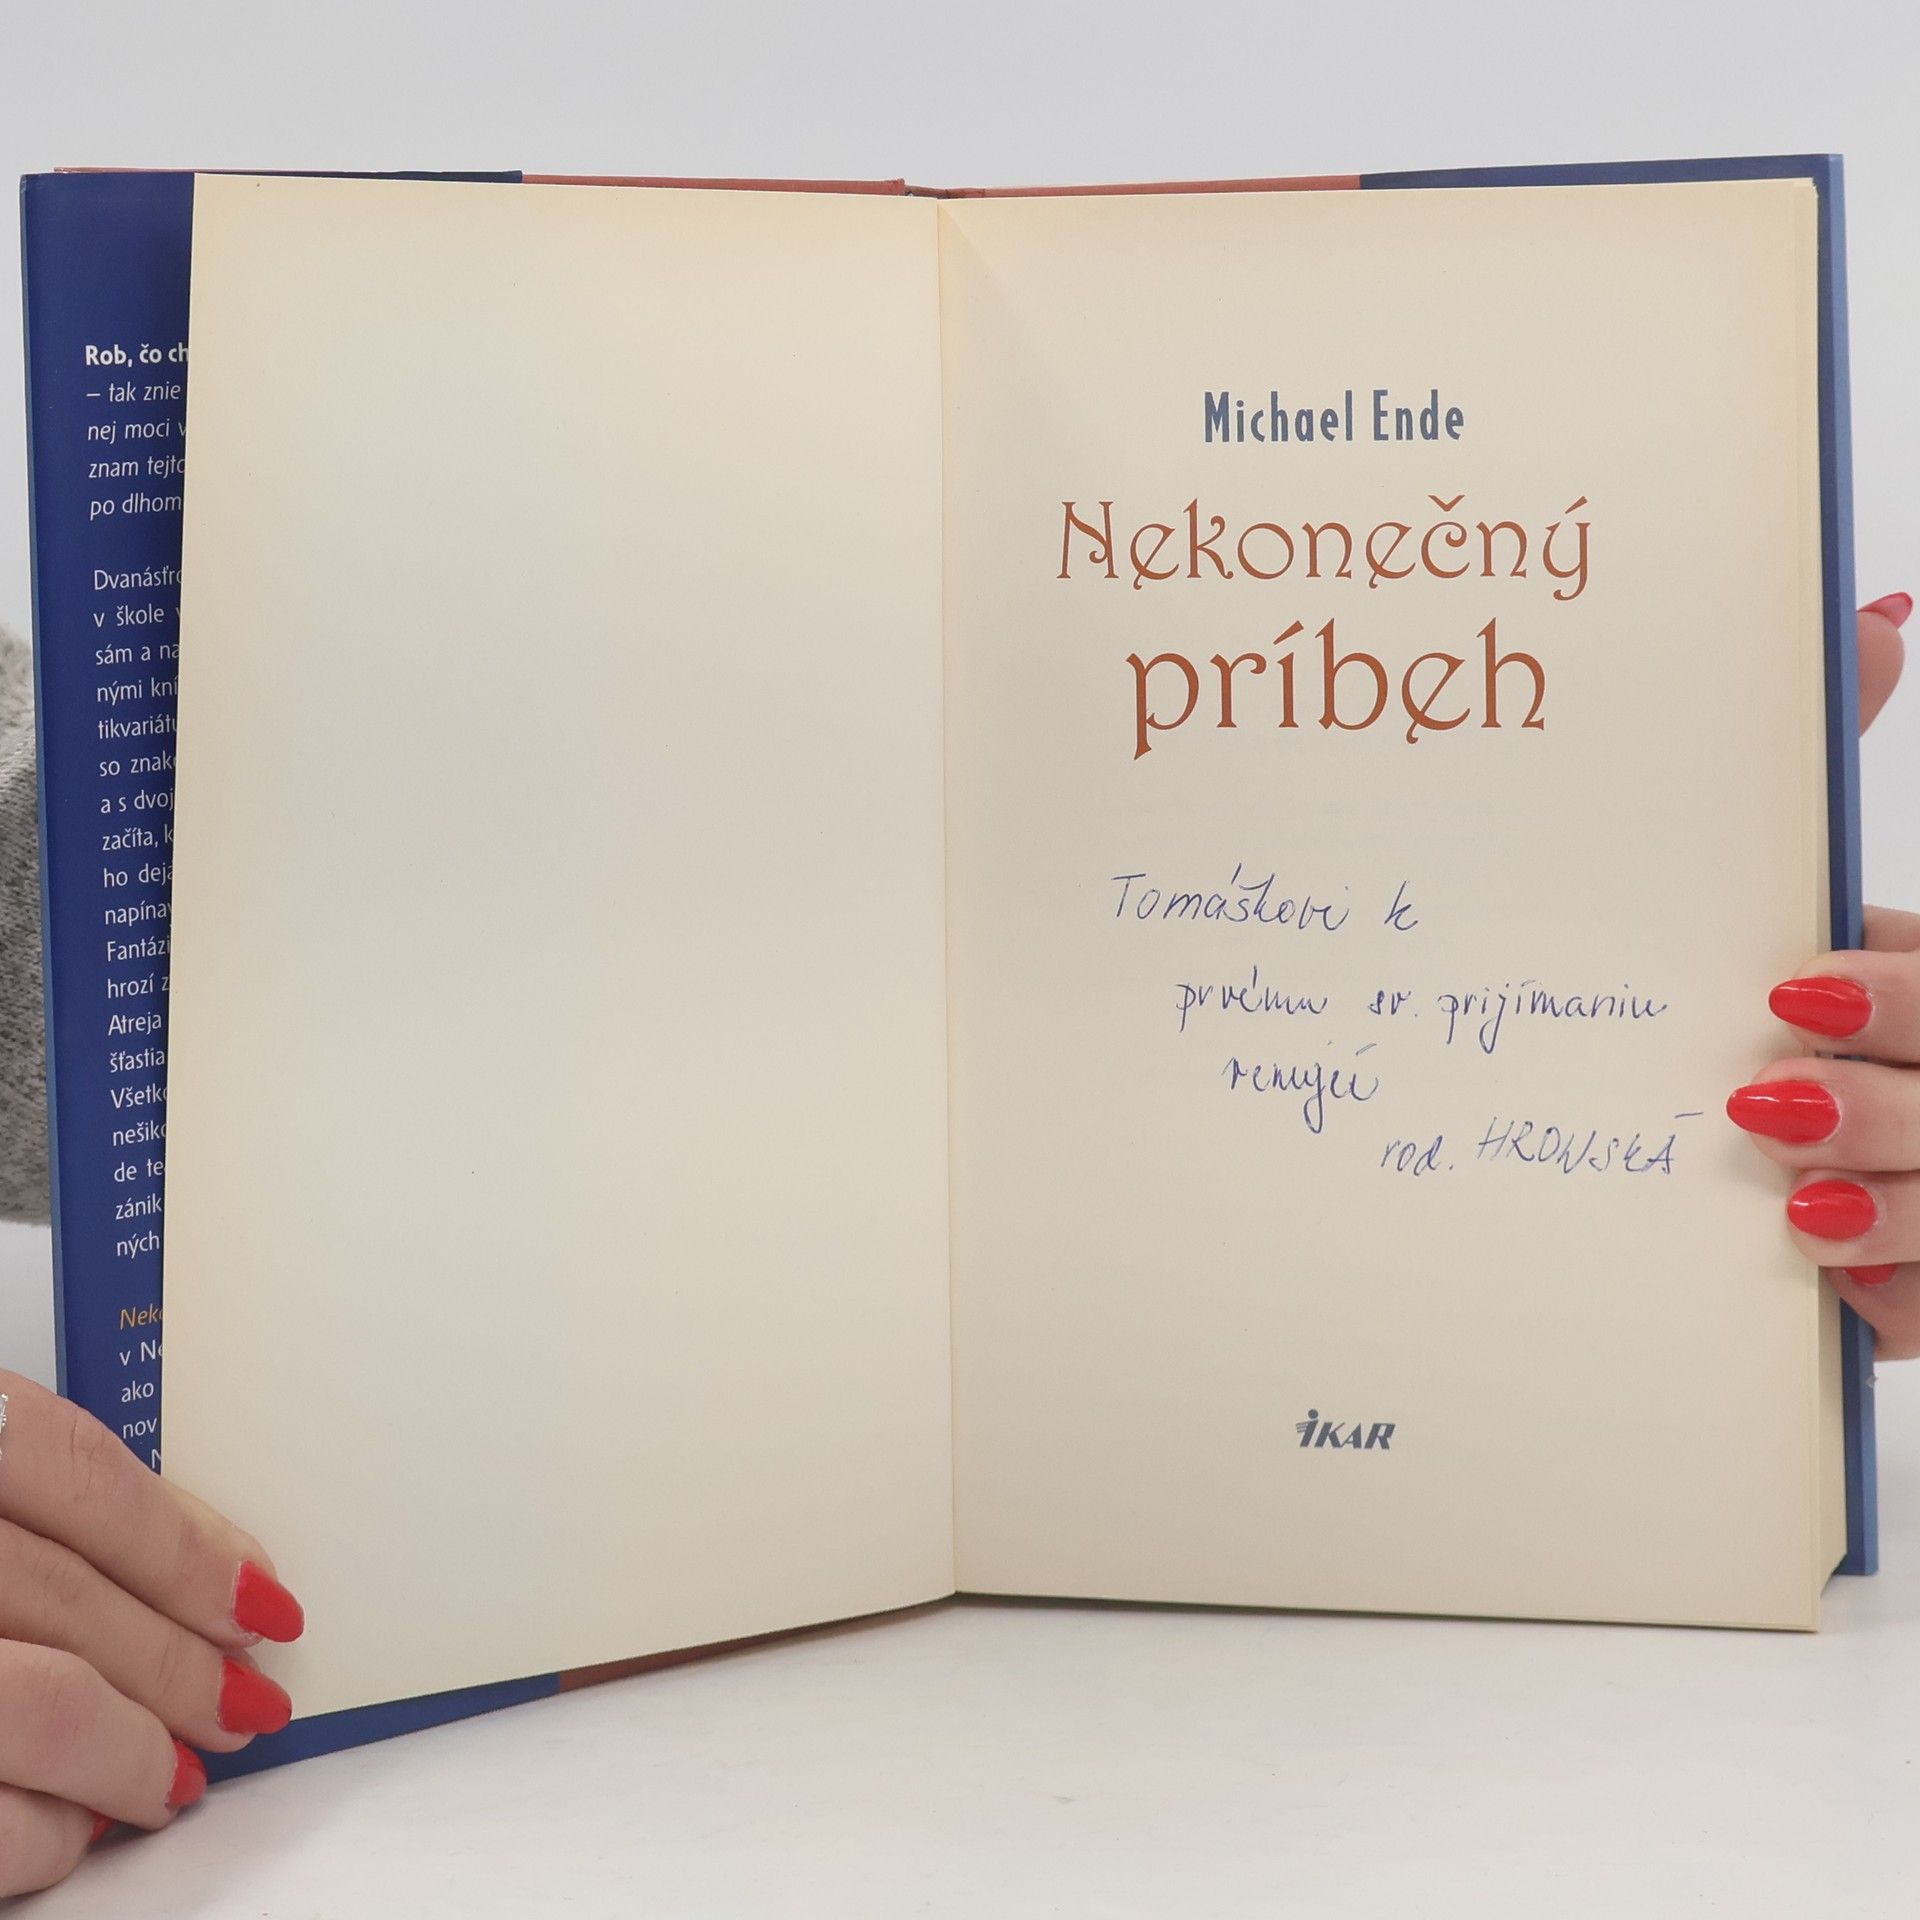 Rob, čo ch
– tak znie
nej moci v
znam tejto
po dlhom
Dvanásťro
v škole v
sám a na
nými kní
tikvariátu
so znako
a s dvoj
začíta, k
ho deja
napínav
Fantázi
hrozí z
Atreja
šťastia
Všetko
nešiko
de te
zánik
ných
Neko
v Ne
ako
nov
N
Michael Ende
Nekonečný
príbeh
Tomáškovi k
prvému sv. prijímaniu
venujú
rod. HROWSKÁ
IKAR